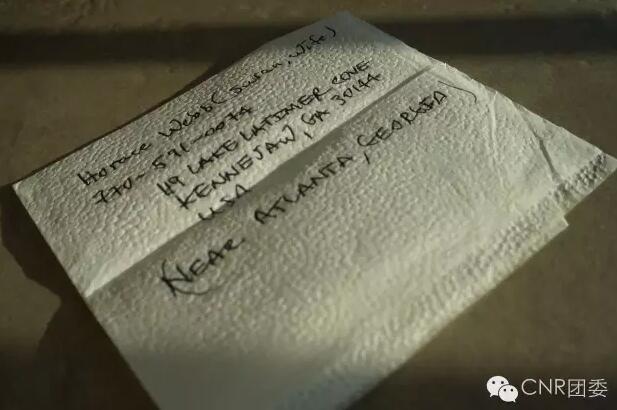 Horace Webb (Susan, Wife)
770-591-0074
119 LAKE LATIMER COVE
KENNESAW, GA 30144
USA
(NEAR ATLANTA, GEORGIA)
CNR团委